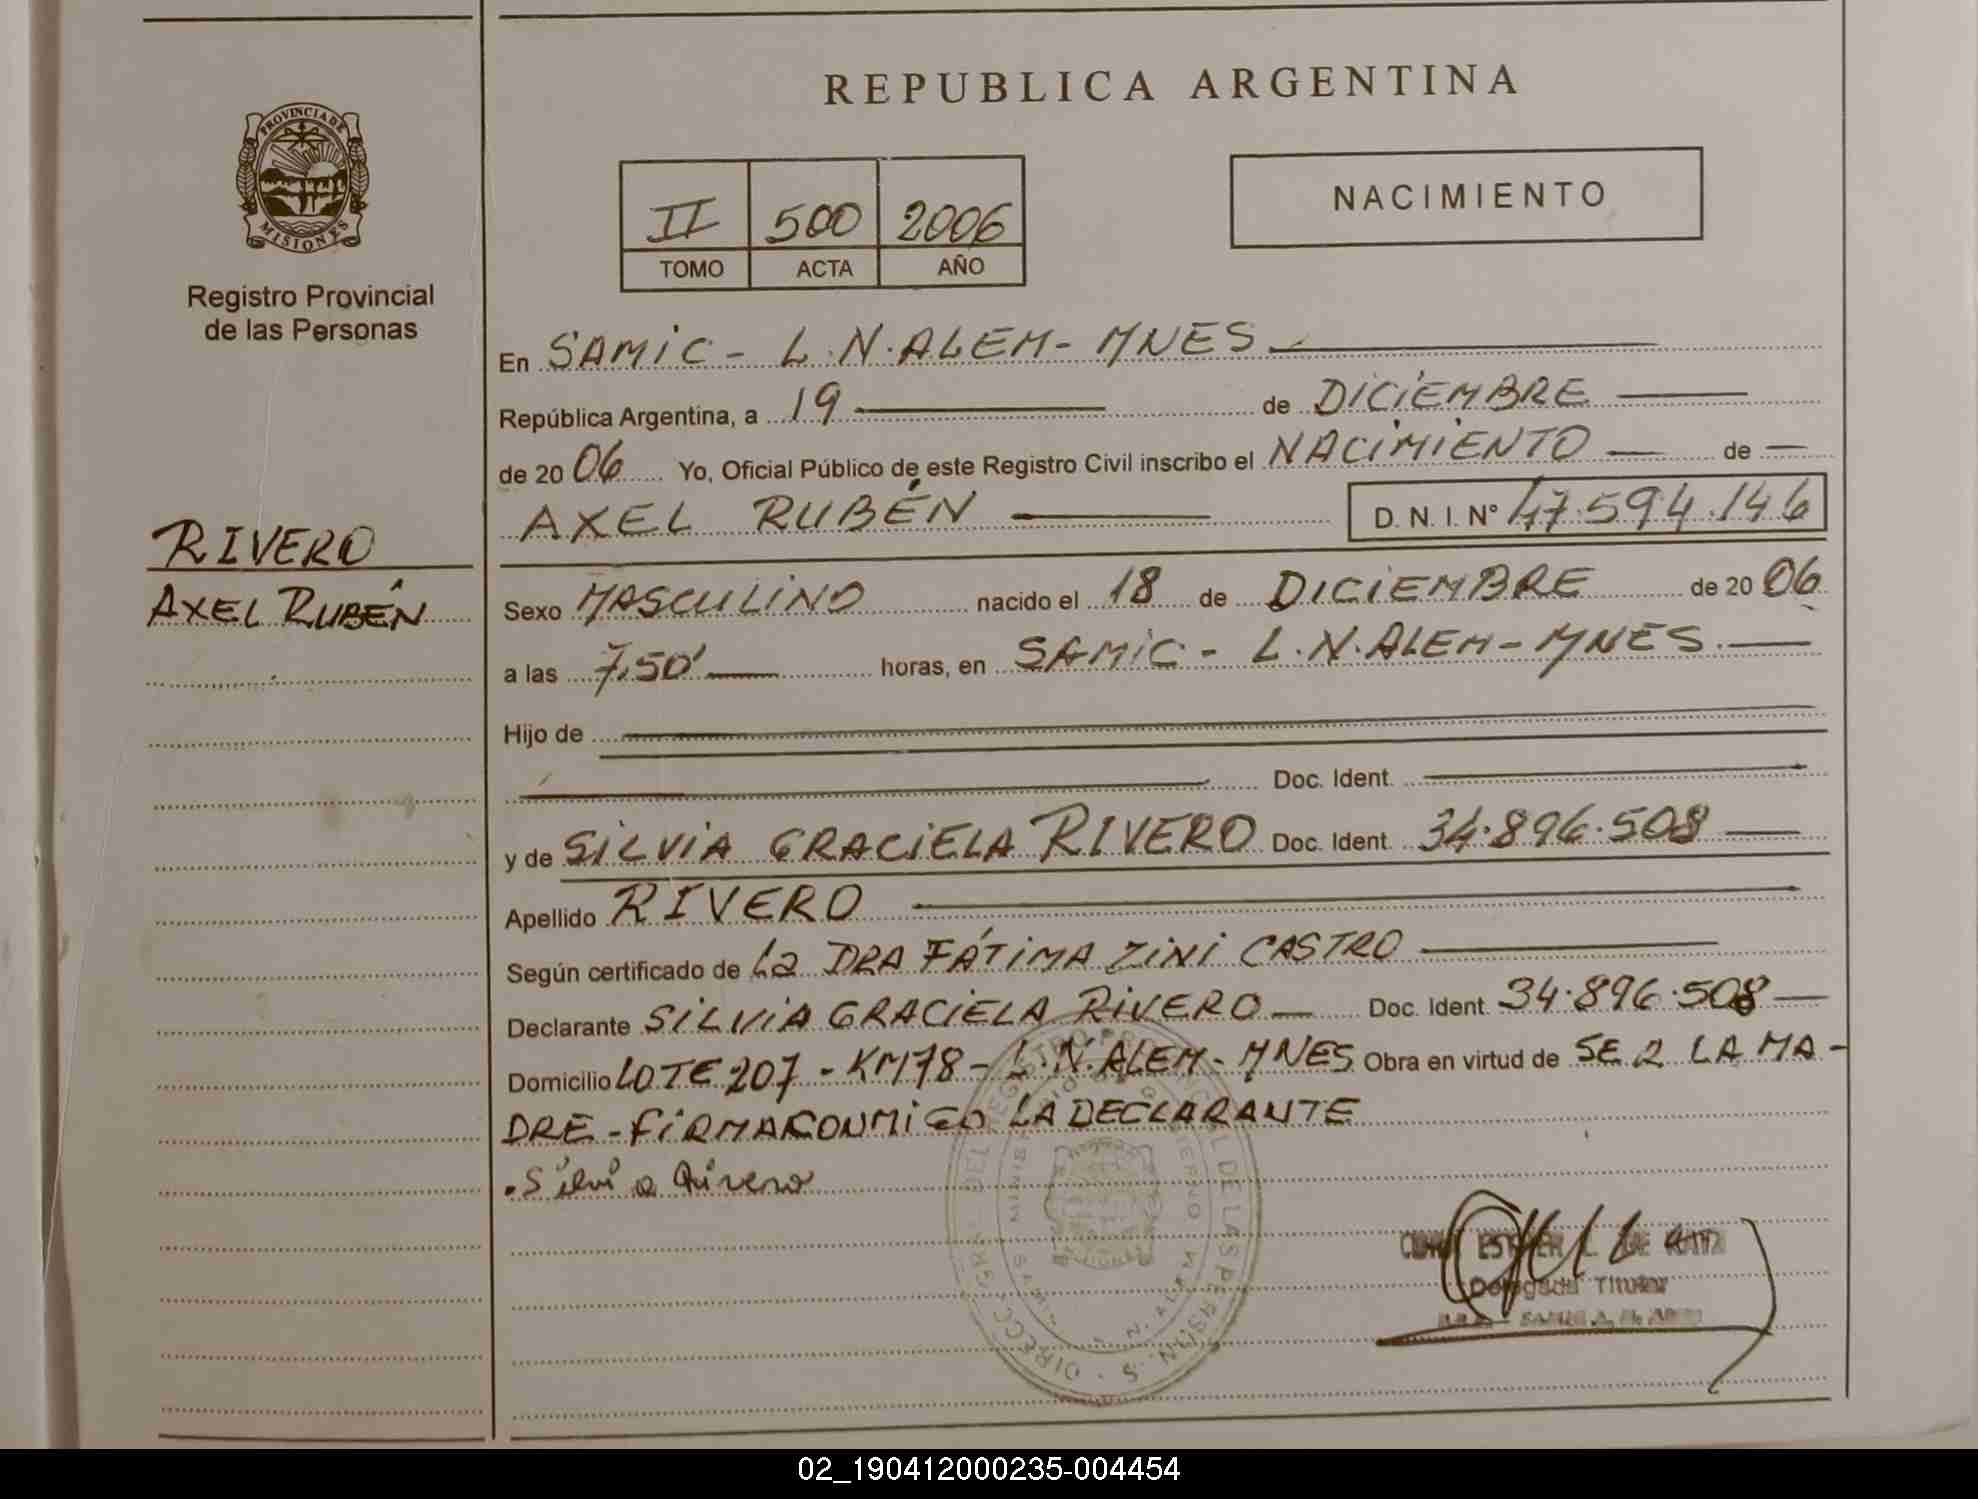 REPUBLICA ARGENTINA
PROVINCIA DE
MISIONES
Registro Provincial
de las Personas
II 500 2006
TOMO ACTA AÑO
NACIMIENTO
En SAMIC - L.N.ALEM - MNES
República Argentina, a 19 de DICIEMBRE
de 2006 Yo, Oficial Público de este Registro Civil inscribo el NACIMIENTO de
AXEL RUBÉN D. N. I. N° 47.594.146
RIVERO
AXEL RUBÉN
Sexo MASCULINO nacido el 18 de DICIEMBRE de 2006
a las 7,50' horas, en SAMIC - L.N.ALEM - MNES.
Hijo de
Doc. Ident.
y de SILVIA GRACIELA RIVERO Doc. Ident. 34.896.508
Apellido RIVERO
Según certificado de La DRA FÁTIMA ZINI CASTRO
Declarante SILVIA GRACIELA RIVERO Doc. Ident. 34.896.508
Domicilio LOTE 207 - KM78 - L.N.ALEM - MNES Obra en virtud de SER LA MA-
DRE - FIRMA CONMIGO LA DECLARANTE
. Silvia Rivero
ESTHER L. DE
Delegada Titular
02_190412000235-004454